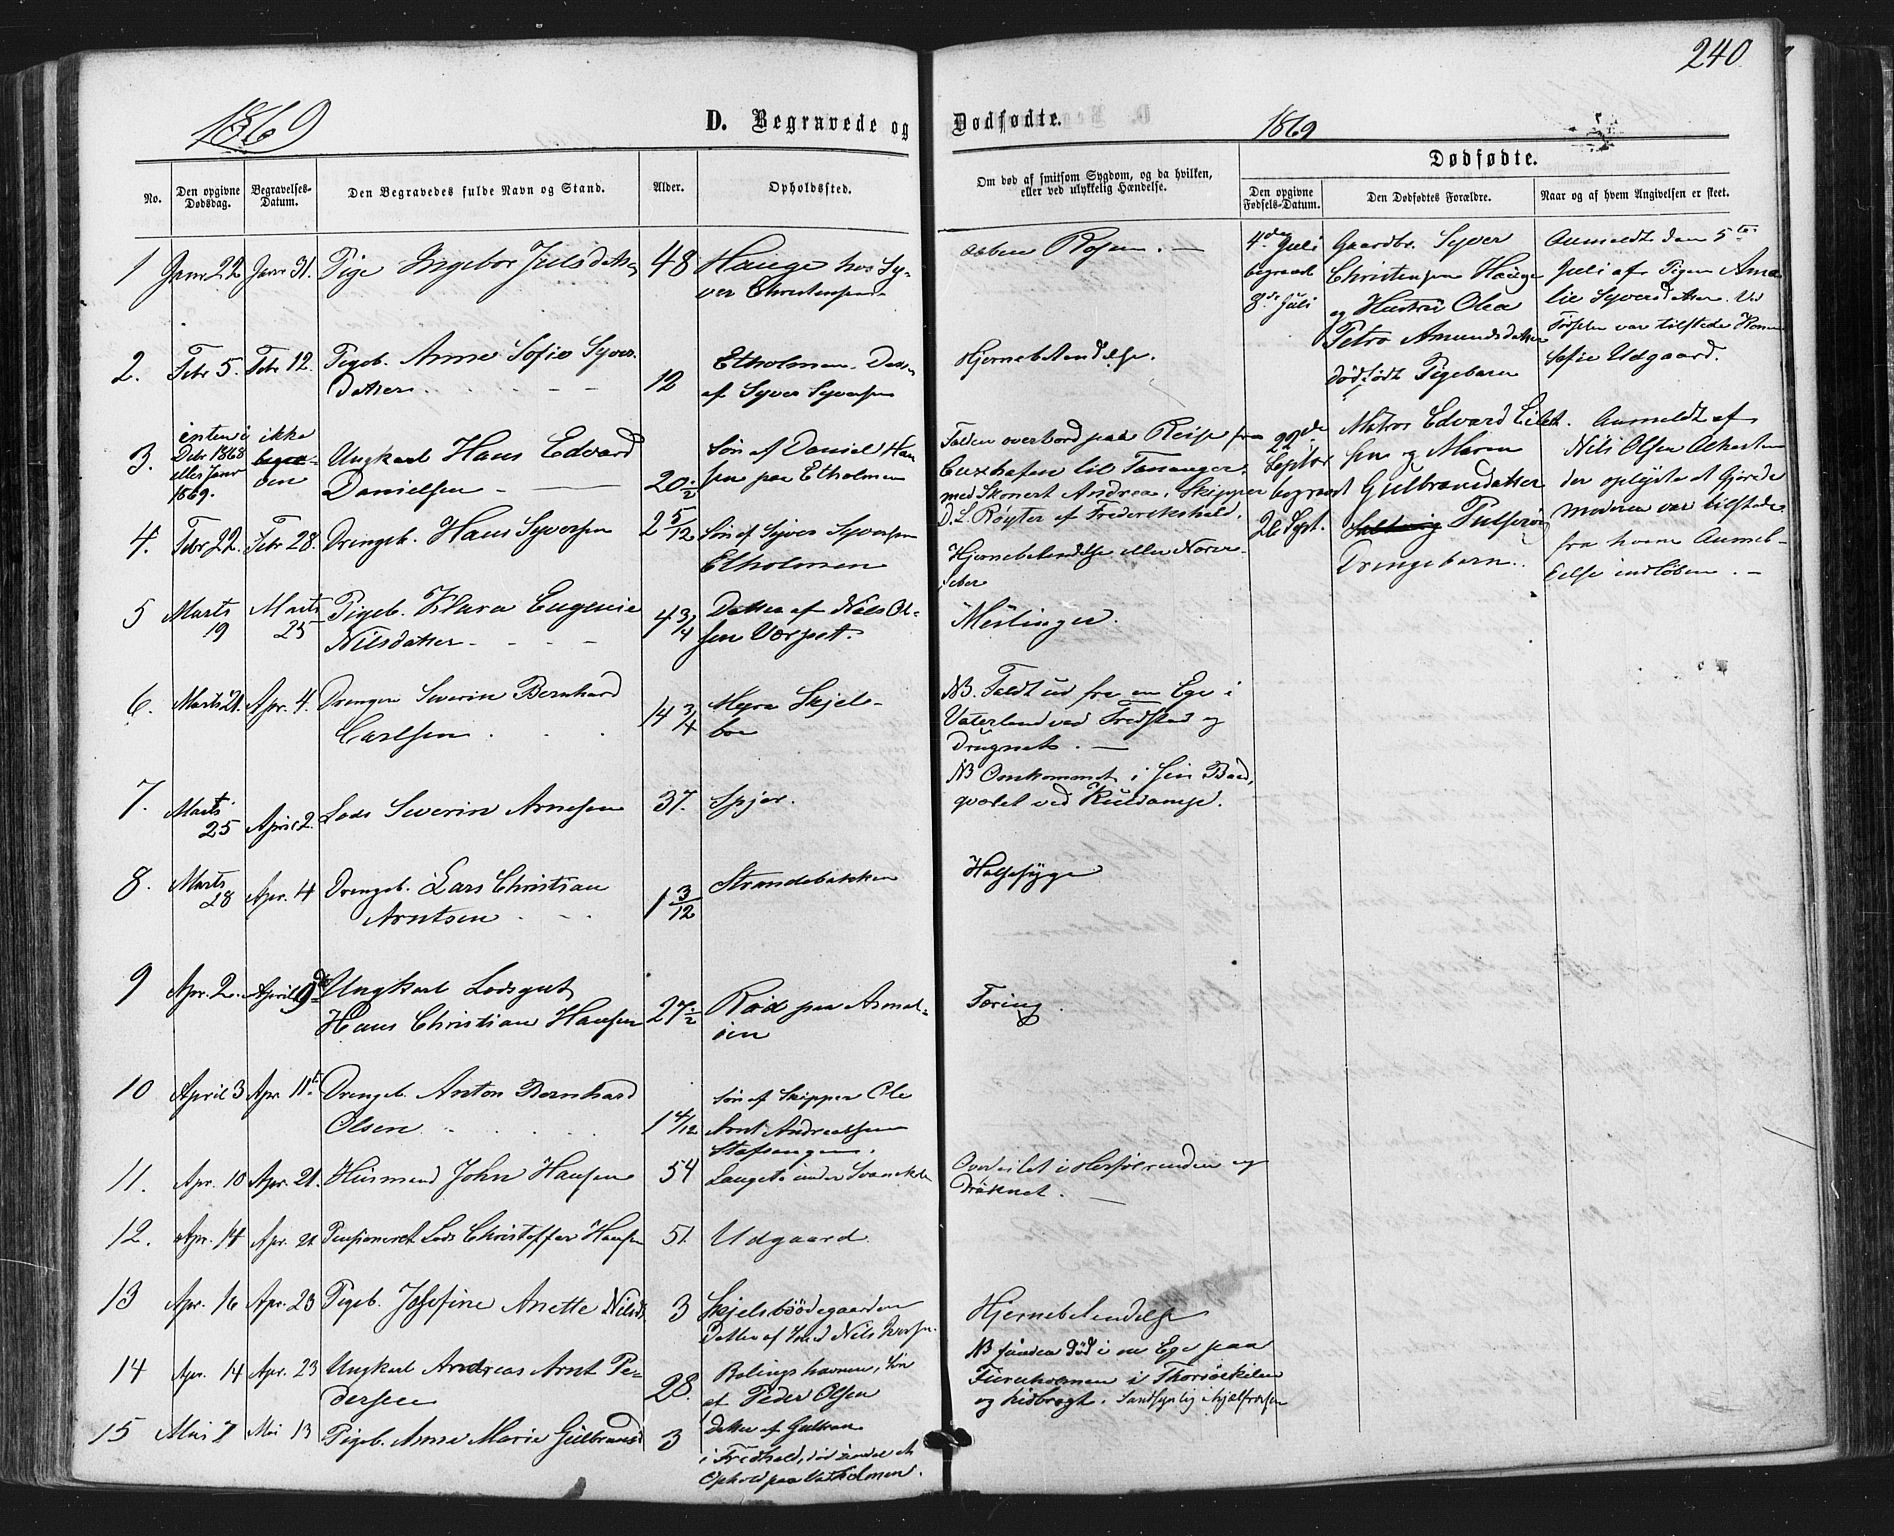 240
1869
D. Begravede og Dødfødte.
1869
Dødfødte.
No.
Den opgivne Dødsdag.
Begravelses-Datum.
Den Begravedes fulde Navn og Stand.
Alder.
Opholdssted.
Om død af smitsom Sygdom, og da hvilken,
eller ved ulykkelig Hændelse.
Den opgivne Fødsels-Datum.
Den Dødfødtes Forældre.
Naar og af hvem Angivelsen er skeet.
1 Janr 22 Janr 31. Pige Ingebor Julsdatter 48 Hauge hos Sy-
ver Christensen
aaben Rosen. —
2. Febr 5. Febr 12. Pigeb. Anne Sofie Syvers
Datter 12 Etholmen. Datter
af Syver Syversen
Hjernebetændelse.
3. enten i Debr 1868 eller Janr 1869. ikke begra-
ven
Ungkarl Hans Edvard
Danielsen — 20 1/2
Søn af Daniel Han
sen paa Etholmen
Falden overbord paa Reise fra
Cuxhafen til Tananger
med Skonert Andrea, Skipper
D. L. Røyter af Frederikshald.
4. Febr 22. Febr 28. Drengeb. Hans Syversen 2 5/12 Søn af Syver Syversen
Etholmen
Hjernebetændelse eller Nerve-
feber
5 Marts 19 Marts 25 Pigeb. Klara Eugenie
Nilsdatter 4 3/4 Datter af Niels Ol-
sen
Meslinger.
6. Marts 21. Apr. 4. Drengen Severin Bernhard
Carlsen 14 3/4 Myra Skjels-
boe
NB. Faldt ud fra en Ege i
Vaterland ved Fredstad og
druknet. —
7. Marts 25 April 2. Lods Severin Arnesen 37. Spjær.
NB Omkommet i sin Baad,
qvalt ved
8. Marts 28 Apr. 4 Drengeb. Lars Christian
Arntsen 1 3/12 Strandebakken
Halssyge
9 Apr. 2. April 9de Ungkarl Lodsgut
Hans Christian Hansen 27 1/2 Rød paa Asmal-
øen
Tæring.
10 April 3 Apr. 11te Drengeb. Anton Bernhard
Olsen 1 4/12 Søn af Skipper Ole
Arnt Andreassen
Stafsengen.
11. Apr. 10 Apr. 21. Husmand John Hansen 54 Langetø under
Overseilet i og
druknet. —
12. Apr. 14 Apr. 21 Pensioneret Lods Christoffer Hansen 51 Udgaard.
13 Apr. 16 Apr. 23 Pigeb. Josefine Anette Nilsd. 3 Skjelsbøødegaarden
Datter af Smed Nils
Hjernebetændelse
14 Apr. 14 Apr. 23 Ungkarl Andreas Arnt Pe-
dersen 28. havnen, Søn
af Peder Olsen
NB funden død i en Ege paa
Fureholmen i
og
15 Mai 7 Mai 13 Pigeb. Anne Marie Gulbrandsd 3 Datter af Gulbran
i Fredhald, død under et
Ophold paa
4de Juli
begravet
8de Juli
Gaardbr. Syver
Christensen Hauge
og Hustru Olea
Petra Amundsdatter
dødfødt Pigebarn
Anmeldt den 5te
Juli af Pigen Ama
lie Syversdatter. Ved
Fødselen var tilstede Kone
Sofie Udgaard.
22de
Septbr
begravet
26 Sept.
Matros Edvard Eilert.
sen og Maren
Gulbransdatter
Drengebarn.
Anmeldt af
Nils Olsen
der oplyste at Gjorde
moderen var tilstede
fra hvem Anmel-
delse indløben. —